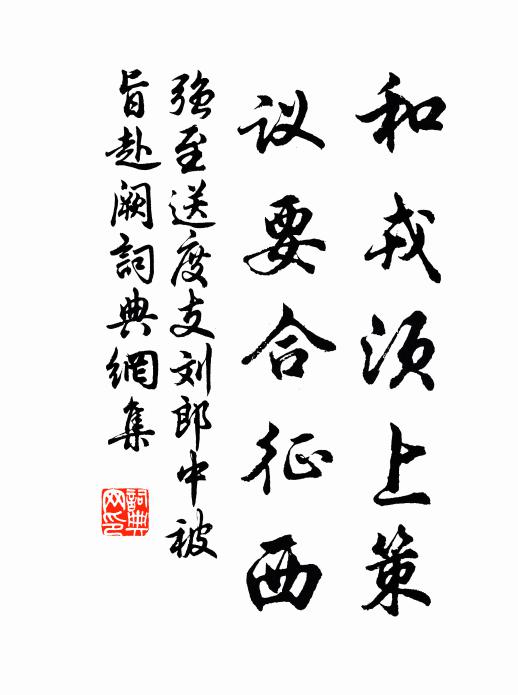 和戎须上策
议要合征西
强至送度支刘郎中被
旨赴阙詞典網集
詞典網印